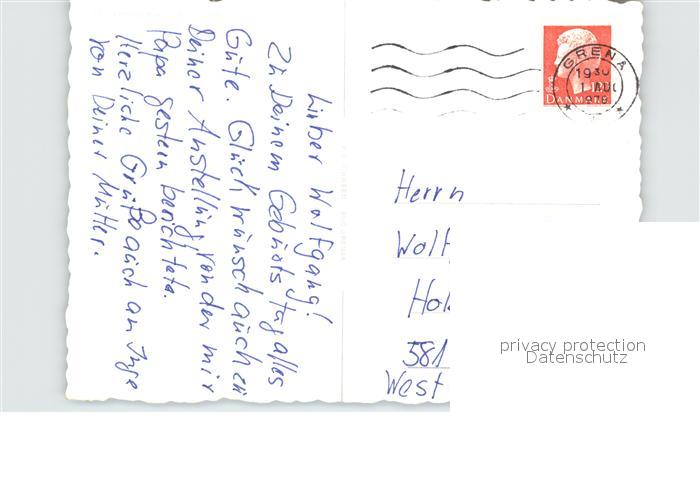 Lieber Wolfgang!
Zu Deinem Geburtstag alles
Gute. Glückwunsch auch zu
Deiner Anstellung, von der mir
Papa gestern berichtete.
Herzliche Grüße auch an Inge
von Deiner Mutter.
GRENA
1930
1 AUG
978
DANMARK
Herrn
Wolf
Hol
581
West
privacy protection
Datenschutz